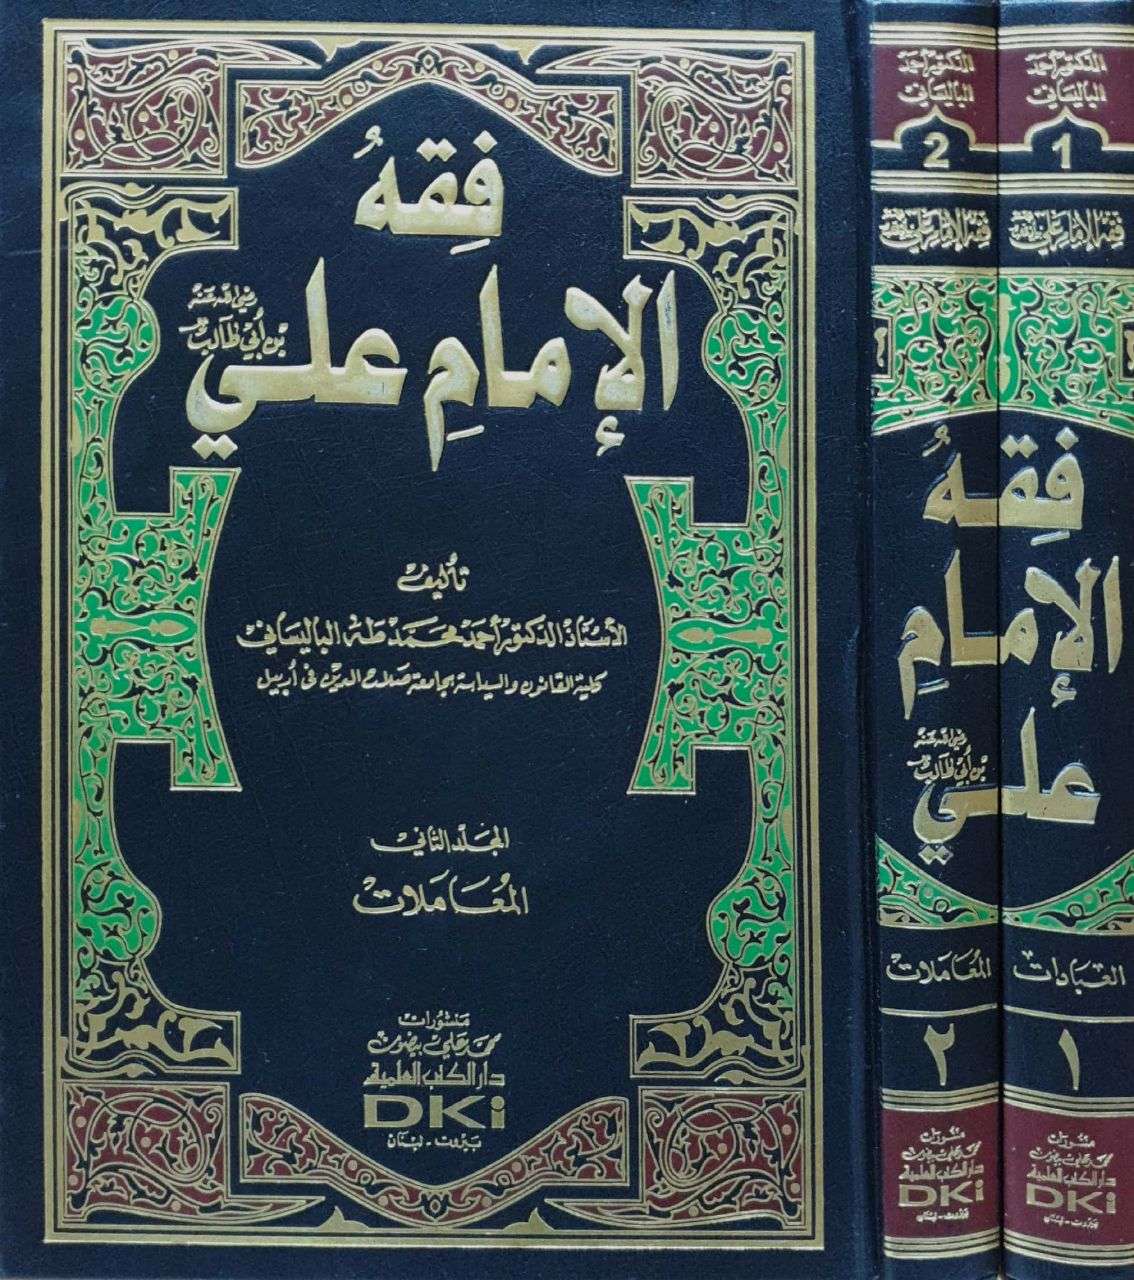 فِقهُ
الإمامِ علي
رضي الله عنه
بن أبي طالب
تأليف
الأستاذ الدكتور أحمد محمد طه الباليساني
كلية القانون والسياسة بجامعة صلاح الدين في أربيل
المجلد الثاني
المُعَامَلات
منشورات
محمد علي بيضون
دار الكتب العلمية
DKi
بيروت - لبنان
الدكتور أحمد
الباليساني
1
فقه الإمام علي
فِقهُ
الإمامِ
علي
رضي الله عنه
بن أبي طالب
العبادات
١
منشورات
محمد علي بيضون
دار الكتب العلمية
DKi
بيروت - لبنان
الدكتور أحمد
الباليساني
2
فقه الإمام علي
المُعَامَلات
٢
منشورات
محمد علي بيضون
دار الكتب العلمية
DKi
بيروت - لبنان